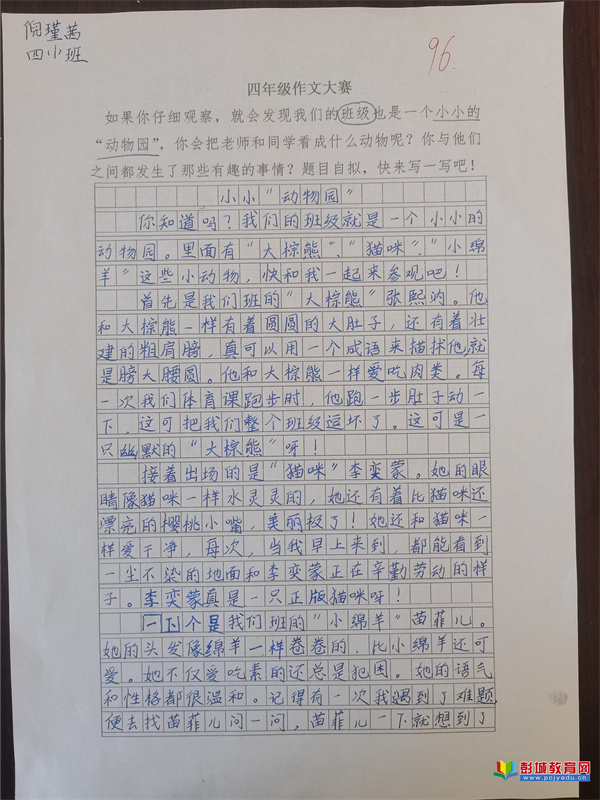 倪瑾茜
四小班
96.
四年级作文大赛
如果你仔细观察，就会发现我们的班级也是一个小小的
“动物园”，你会把老师和同学看成什么动物呢？你与他们
之间都发生了那些有趣的事情？题目自拟，快来写一写吧！
小小“动物园”
你知道吗？我们的班级就是一个小小的
动物园。里面有“大棕熊”、“猫咪”、“小绵
羊”这些小动物，快和我一起来参观吧！
首先是我们班的“大棕熊”张熙汭。他
和大棕熊一样有着圆圆的大肚子，还有着壮
建的粗肩膀，真可以用一个成语来描述他就
是膀大腰圆。他和大棕熊一样爱吃肉类。每
一次我们体育课跑步时，他跑一步肚子动一
下，这可把我们整个班级逗坏了。这可是一
只幽默的“大棕熊”呀！
接着出场的是“猫咪”李奕蒙。她的眼
睛像猫咪一样水灵灵的，她还有着比猫咪还
漂亮的樱桃小嘴，美丽极了！她还和猫咪一
样爱干净，每次，当我早上来到，都能看到
一尘不染的地面和李奕蒙正在辛勤劳动的样
子。李奕蒙真是一只正版猫咪呀！
下一个是我们班的“小绵羊”苗菲儿。
她的头发像绵羊一样卷卷的，比小绵羊还可
爱。她不仅爱吃素的还总是犯困。她的语气
和性格都很温和。记得有一次我遇到了难题，
便去找苗菲儿问一问，苗菲儿一下就想到了
彭城教育网
www.pcjyedu.cn